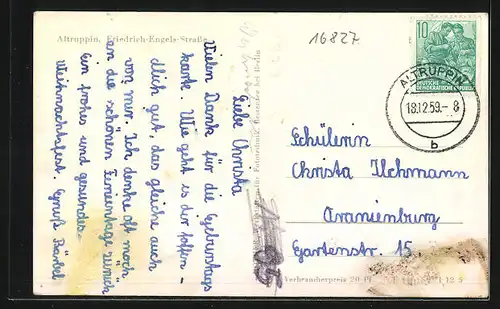 Altruppin, Friedrich-Engels-Straße
16827
10
DEUTSCHE
DEMOKRATISCHE REPUBLIK
ALTRUPPIN
18.12.59.- 8
b
Liebe Christa
Vielen Dank für die Geburtstags
karte. Wie geht es dir hoffen-
dlich gut, das gleiche auch
von mir. Ich denke oft noch
an die schönen Ferientage zurück
ein frohes und gesundes
Weihnachtsfest. Gruß Bärbel
Schülerin
Christa Ilchmann
Oranienburg
Gartenstr. 15.
Verbraucherpreis 20 Pf.